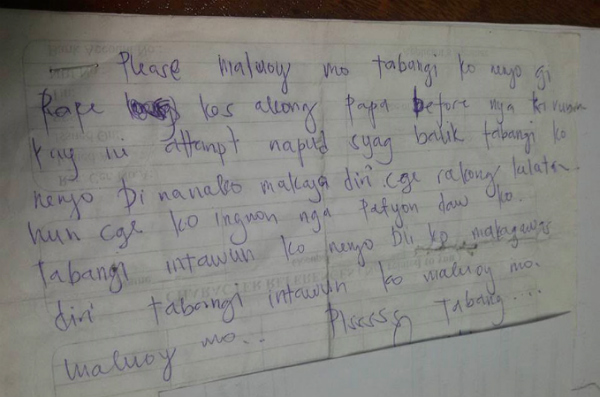 Please maluoy mo tabangi ko nenyo gi
Rape kos akong papa before nya
kay in attempt napud syag balik tabangi ko
nenyo Di nanako makaya diri cge rakong
hun cge ko ingnon nga Patyon daw ko.
Tabangi intawun ko nenyo Dli ko makagawas
diri tabangi intawun ko maluoy mo.
maluoy mo... Plsssss Tabang....